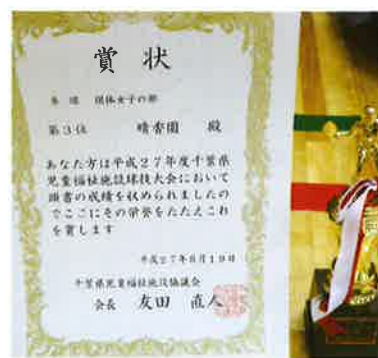 賞状
団体女子の部
第3位 晴香園 殿
あなた方は平成27年度千葉県
児童福祉施設球技大会において
頭書の成績を収められましたの
でここにその栄誉をたたえこれ
を賞します
平成27年8月19日
千葉県児童福祉施設協議会
会長 友田 直人